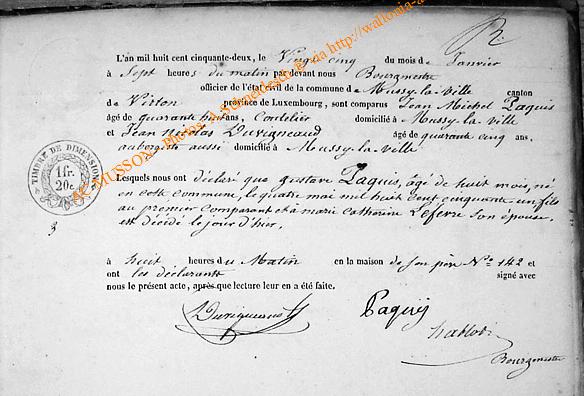 R.
L'an mil huit cent cinquante-deux, le Vingt cinq du mois de Janvier
à Sept heures du matin par devant nous Bourgmestre
officier de l'état civil de la commune de Mussy-la-ville canton
de Virton province de Luxembourg, sont comparus Jean Michel Paquis
âgé de quarante huit ans, Cordelier domicilié à Mussy-la-ville
et Jean Nicolas Duvigneaud âgé de quarante cinq ans,
aubergiste aussi domicilié à Mussy-la-ville
Lesquels nous ont déclaré que gustave Paquis, âgé de huit mois, né
en cette commune, le quatre mai mil huit cent cinquante un fils
au premier comparant et à marie Catherine Lefevre son épouse,
est décédé le jour d'hui,
à huit heures du Matin en la maison de son père N° 142 et
ont les déclarants signé avec
nous le présent acte, après que lecture leur en a été faite.
Duvigneaud
Paquis
Bourgmestre
TIMBRE DE DIMENSION
1 fr.
20c.
3
AC MUSSON - Photos
via http://wallonia-a